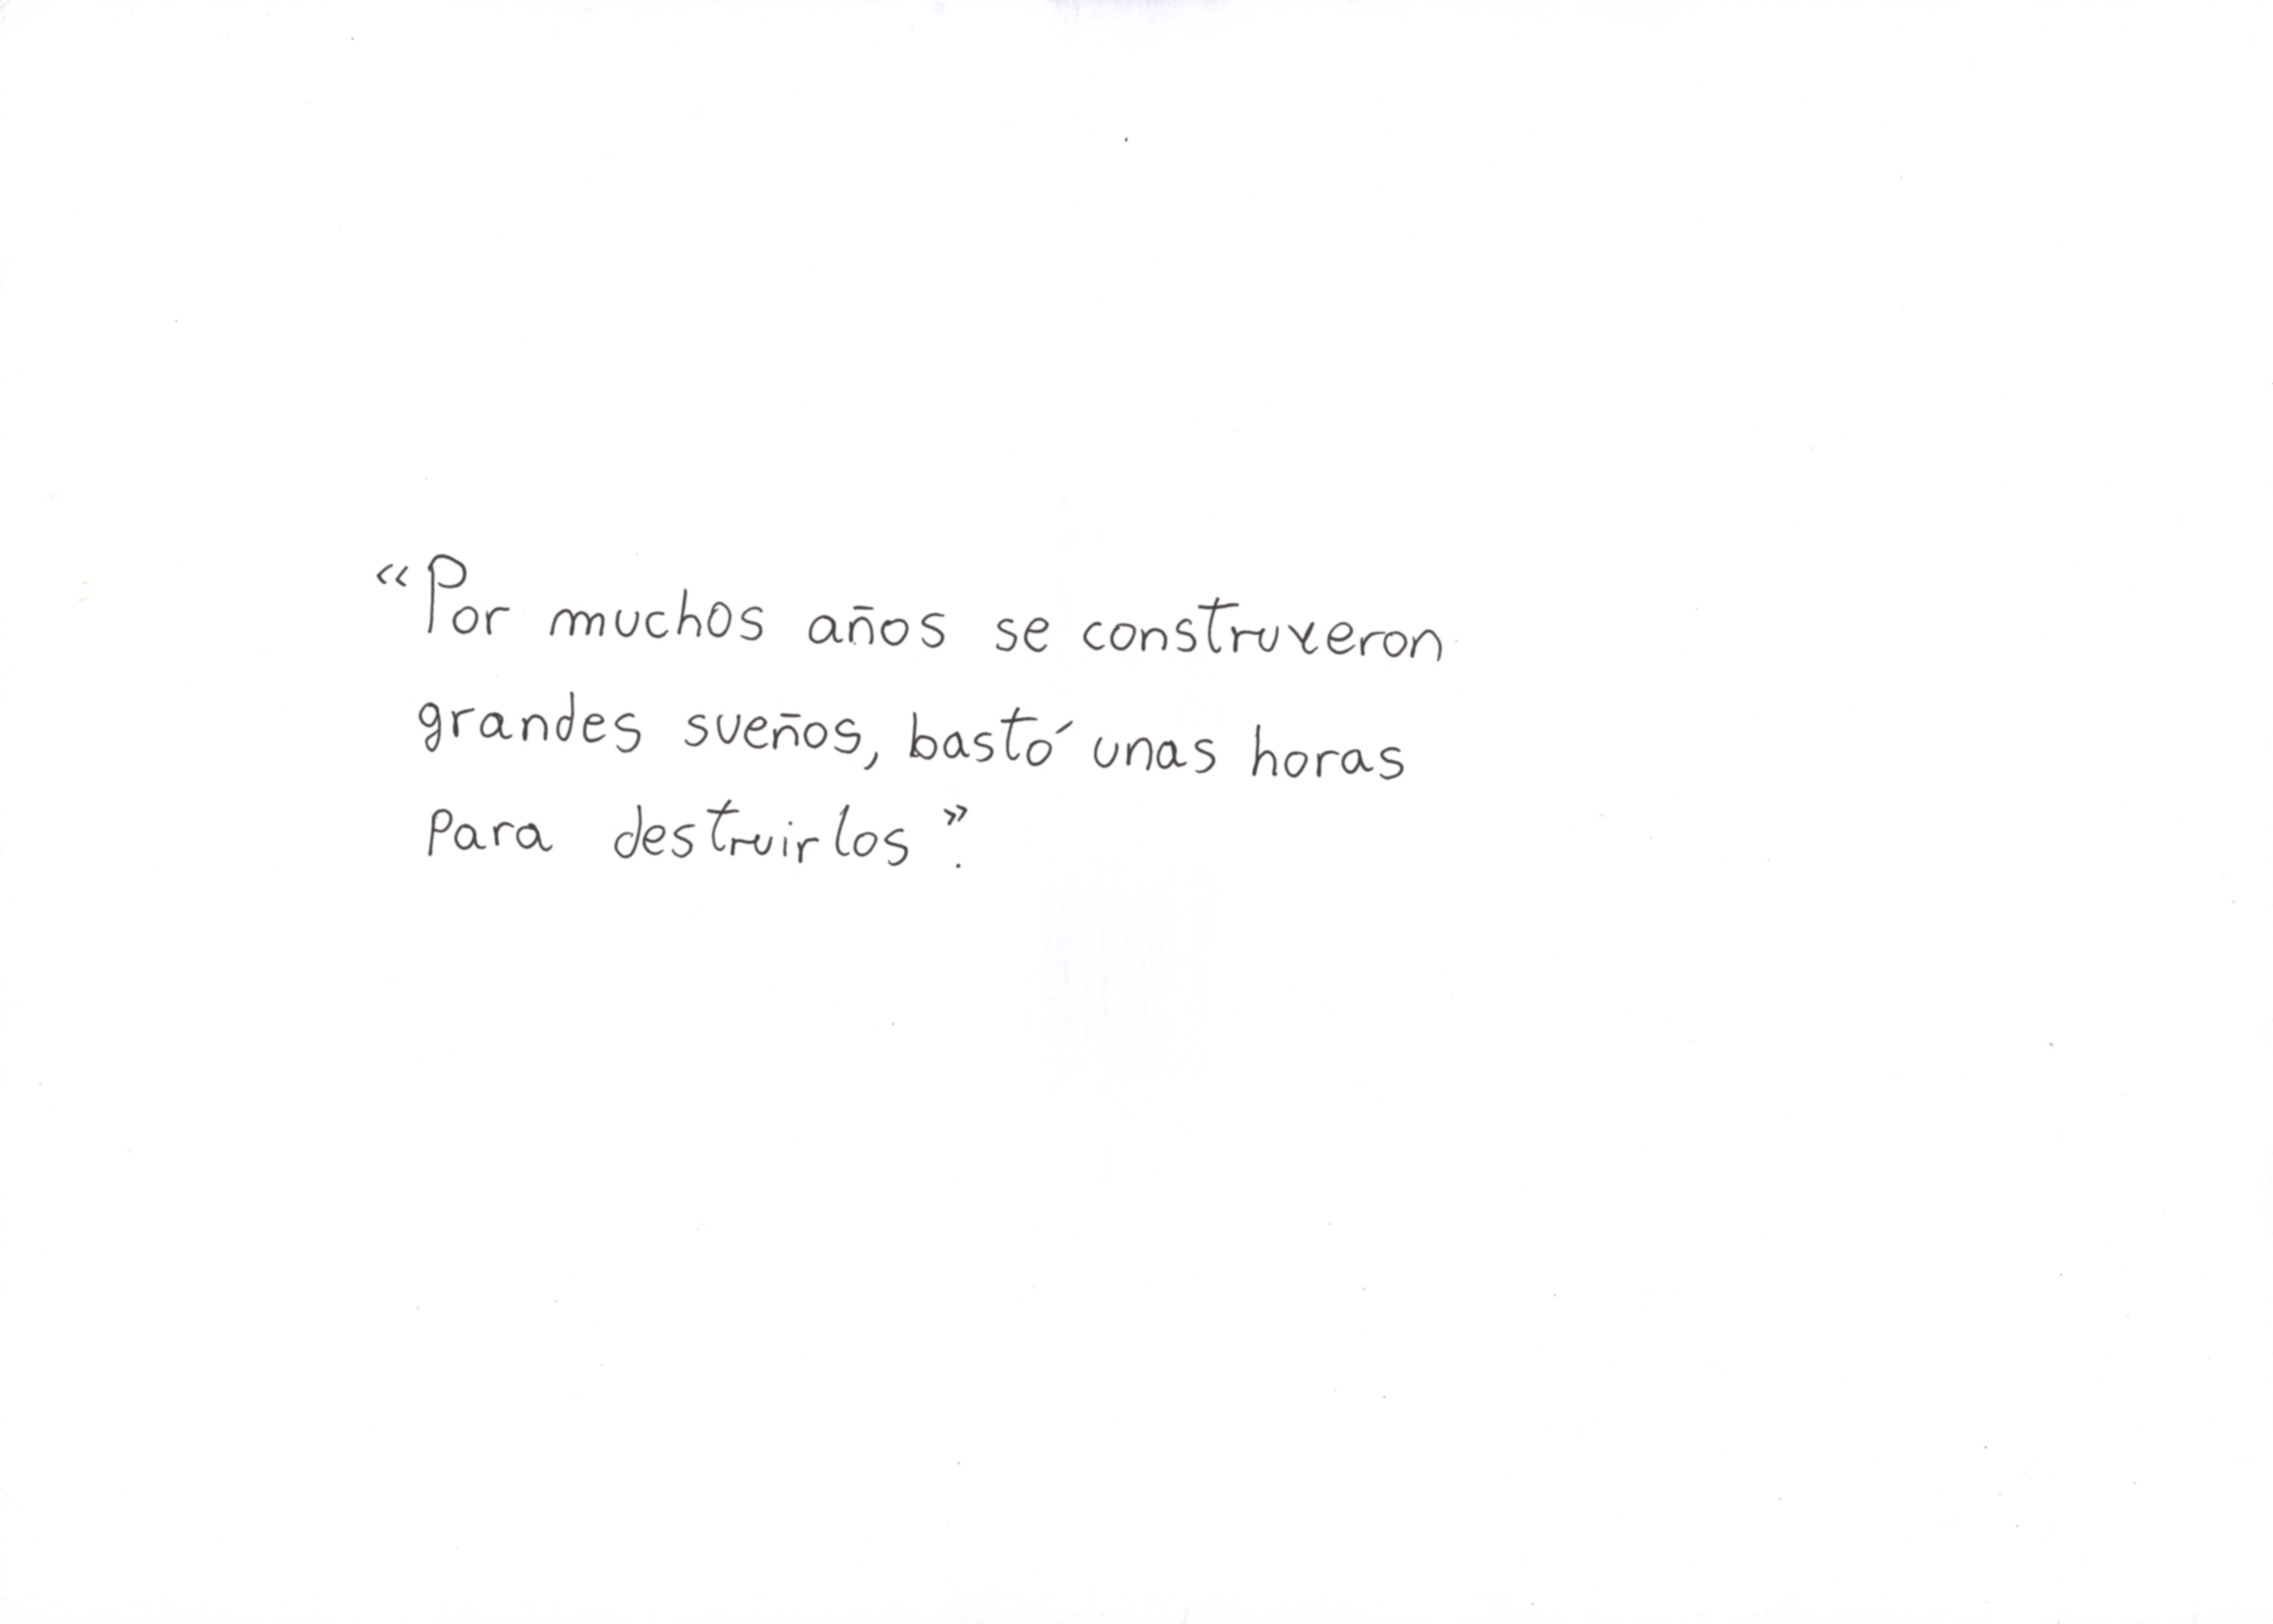 «Por muchos años se construyeron
grandes sueños, bastó unas horas
para destruirlos».